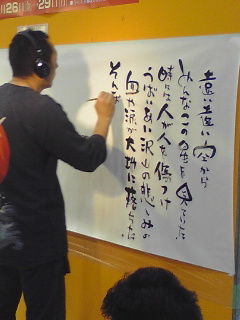 26日 29日
遠い遠い空から
みんなこの星を見ていた
時には人が人を傷つけ
うばいあい沢山の悲しみの
血や涙が大地に落ちた
そんな